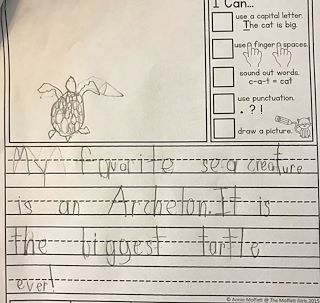 I Can...
use a capital letter.
The cat is big.
use finger spaces.
sound out words.
c-a-t = cat
use punctuation.
. ? !
draw a picture.
My favorite sea creature
is an Archelon. It is
the biggest tartle
ever!
© Annie Moffatt @ The Moffatt Girls 2015